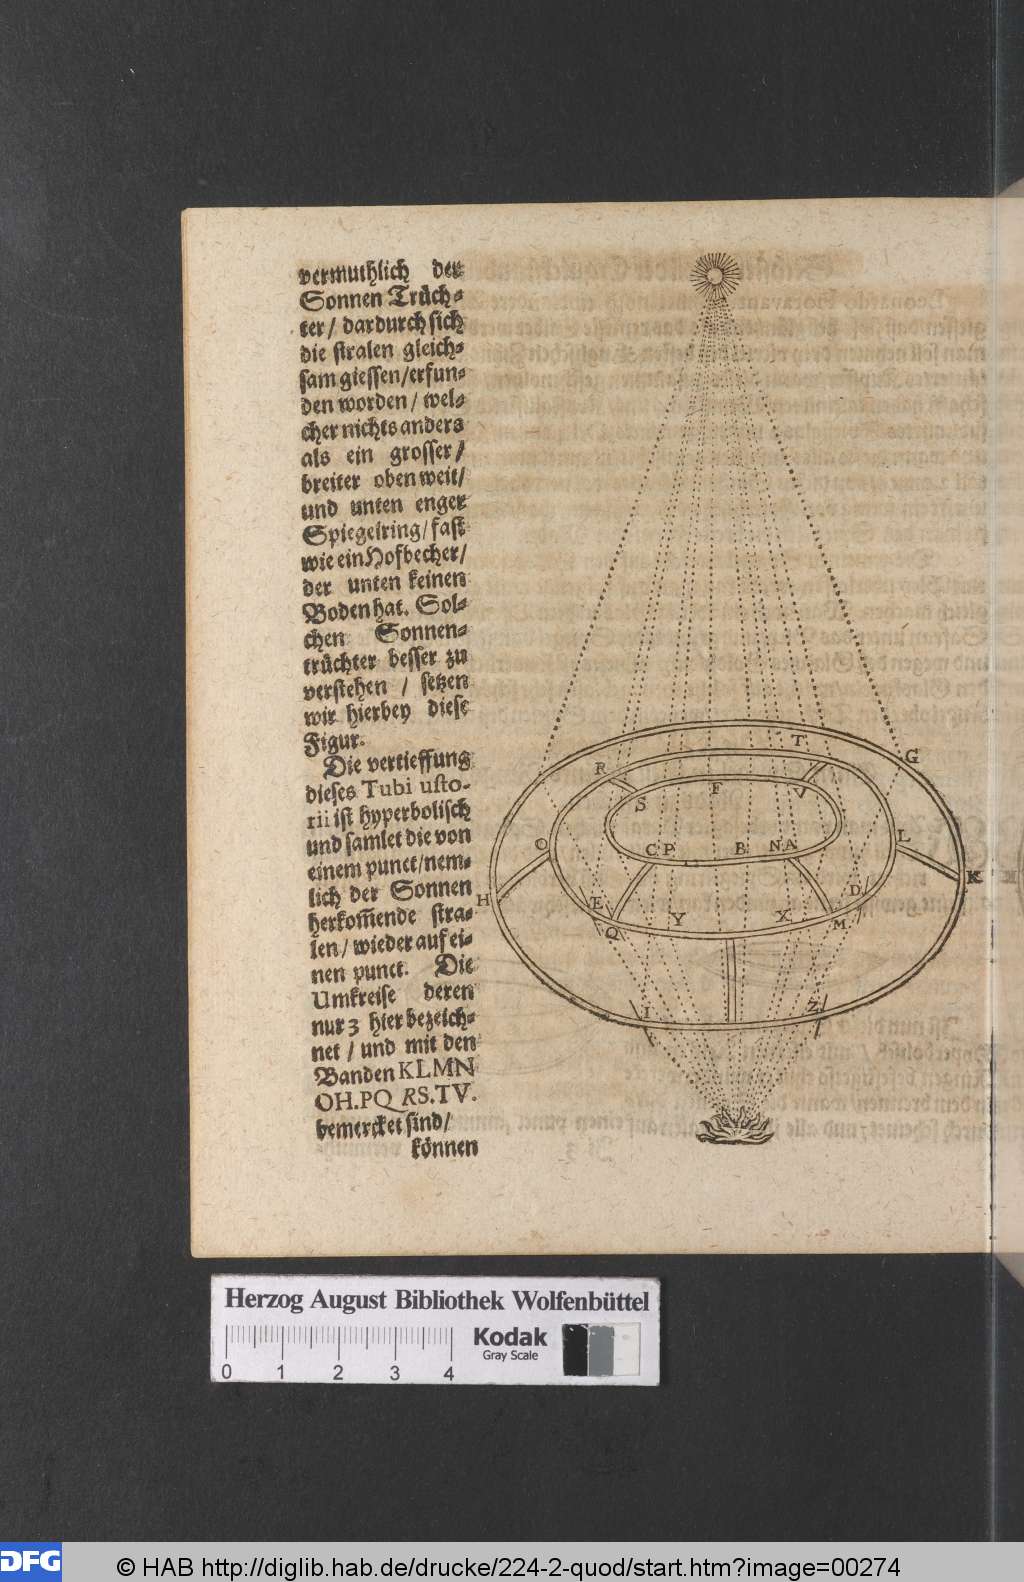 vermuthlich der
Sonnen Trüch-
ter / dardurch sich
die stralen gleich-
sam giessen / erfun-
den worden / wel-
cher nichts anders
als ein grosser /
breiter oben weit /
und unten enger
Spiegelring / fast
wie ein Hofbecher /
der unten keinen
Boden hat. Sol-
chen Sonnen-
trüchter besser zu
verstehen / setzen
wir hierbey diese
Figur.
Die vertieffung
dieses Tubi usto-
rii ist hyperbolisch
und samlet die von
einem punct / nem-
lich der Sonnen
herkom̃ende stra-
len / wieder auf ei-
nen punct. Die
Umkreise deren
nur 3 hier bezeich-
net / und mit den
Banden KLMN
OH.PQ RS.TV.
bemercket sind /
können
T
G
R
F
V
S
O
C P
B
N A
L
K
H
E
D
Q
Y
X
M
I
Z
Herzog August Bibliothek Wolfenbüttel
Kodak
Gray Scale
0 1 2 3 4
DFG
© HAB http://diglib.hab.de/drucke/224-2-quod/start.htm?image=00274